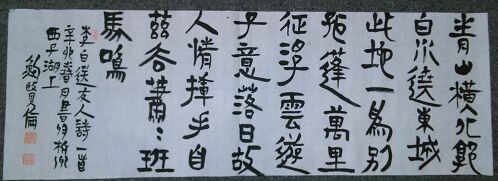 青山橫北郭
白水遶東城
此地一為別
孤蓬萬里
征浮雲遊
子意落日故
人情揮手自
茲去蕭〻班
馬鳴
李白送友人詩一首
辛卯春月書於杭州
西子湖上
鮑賢倫